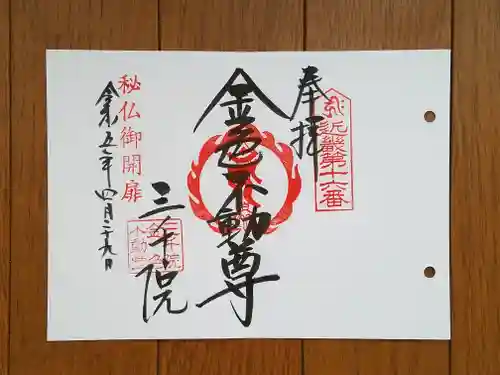 奉拝
近畿第十六番
金色不動尊
三千院
秘仏御開扉
令和五年四月二十九日